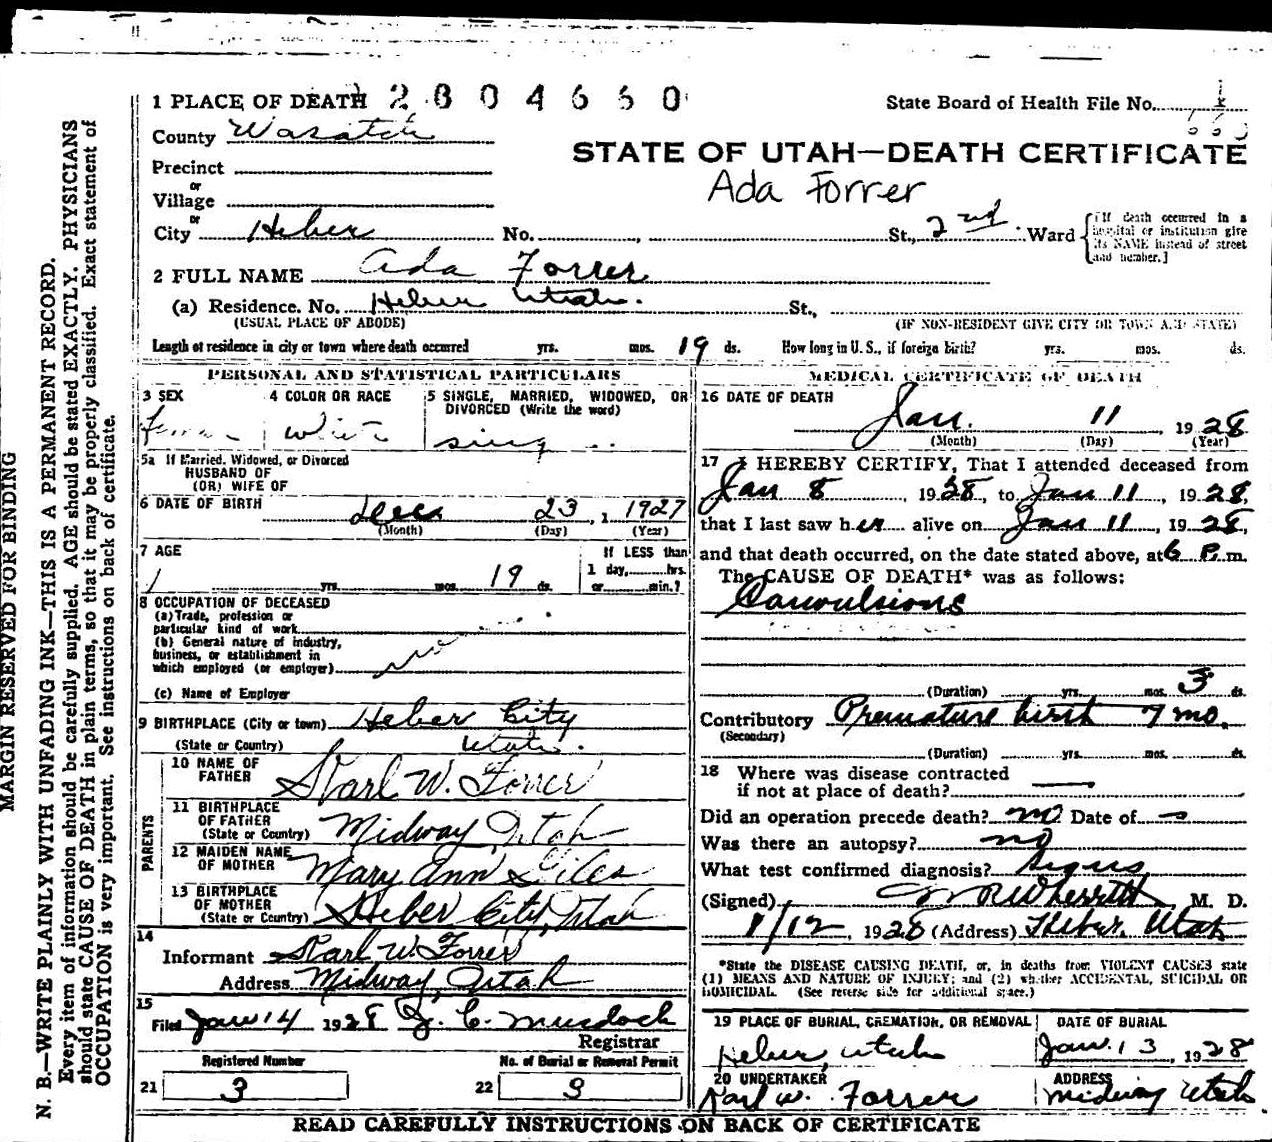 1 PLACE OF DEATH 2804660
State Board of Health File No.
County Wasatch
660
Precinct
STATE OF UTAH—DEATH CERTIFICATE
or
Village
Ada Forrer
or
City Heber No. , St., 2nd Ward
[If death occurred in a hospital or institution give its NAME instead of street and number.]
2 FULL NAME Ada Forrer
(a) Residence. No. Heber Utah. St.,
(USUAL PLACE OF ABODE) (IF NON-RESIDENT GIVE CITY OR TOWN AND STATE)
Length of residence in city or town where death occurred yrs. mos. 19 ds. How long in U. S., if foreign birth? yrs. mos. ds.
PERSONAL AND STATISTICAL PARTICULARS
3 SEX 4 COLOR OR RACE 5 SINGLE, MARRIED, WIDOWED, OR
DIVORCED (Write the word)
white
5a If Married, Widowed, or Divorced
HUSBAND OF
(OR) WIFE OF
6 DATE OF BIRTH Dec 23, 1927
(Month) (Day) (Year)
7 AGE If LESS than
yrs. mos. 19 ds. 1 day, hrs.
or min.?
8 OCCUPATION OF DECEASED
(a) Trade, profession or
particular kind of work
(b) General nature of industry,
business, or establishment in
which employed (or employer)
(c) Name of Employer
9 BIRTHPLACE (City or town) Heber City
(State or Country) Utah.
PARENTS
10 NAME OF
FATHER Karl W. Forrer
11 BIRTHPLACE
OF FATHER
(State or Country) Midway, Utah
12 MAIDEN NAME
OF MOTHER Mary Ann Giles
13 BIRTHPLACE
OF MOTHER
(State or Country) Heber City, Utah
14
Informant Karl W. Forrer
Address Midway, Utah
15
Filed Jan 14 1928 J. C. Murdock
Registrar
Registered Number No. of Burial or Removal Permit
21 3 22 3
MEDICAL CERTIFICATE OF DEATH
16 DATE OF DEATH
Jan. 11, 1928
(Month) (Day) (Year)
17 I HEREBY CERTIFY, That I attended deceased from
Jan 8, 1928, to Jan 11, 1928,
that I last saw her alive on Jan 11, 1928,
and that death occurred, on the date stated above, at 6 P.m.
The CAUSE OF DEATH* was as follows:
Convulsions
(Duration) yrs. mos. 3 ds.
Contributory Premature birth 7 mo.
(Secondary)
(Duration) yrs. mos. ds.
18 Where was disease contracted
if not at place of death?
Did an operation precede death? no Date of
Was there an autopsy? no
What test confirmed diagnosis? Signs
(Signed) M. D.
1/12, 1928 (Address) Heber, Utah
*State the DISEASE CAUSING DEATH, or, in deaths from VIOLENT CAUSES state
(1) MEANS AND NATURE OF INJURY; and (2) whether ACCIDENTAL, SUICIDAL OR
HOMICIDAL. (See reverse side for additional space.)
19 PLACE OF BURIAL, CREMATION, OR REMOVAL DATE OF BURIAL
Heber, Utah Jan. 13, 1928
20 UNDERTAKER ADDRESS
Karl W. Forrer Midway Utah
READ CAREFULLY INSTRUCTIONS ON BACK OF CERTIFICATE
MARGIN RESERVED FOR BINDING
N. B.—WRITE PLAINLY WITH UNFADING INK—THIS IS A PERMANENT RECORD.
Every item of information should be carefully supplied. AGE should be stated EXACTLY. PHYSICIANS
should state CAUSE OF DEATH in plain terms, so that it may be properly classified. Exact statement of
OCCUPATION is very important. See instructions on back of certificate.